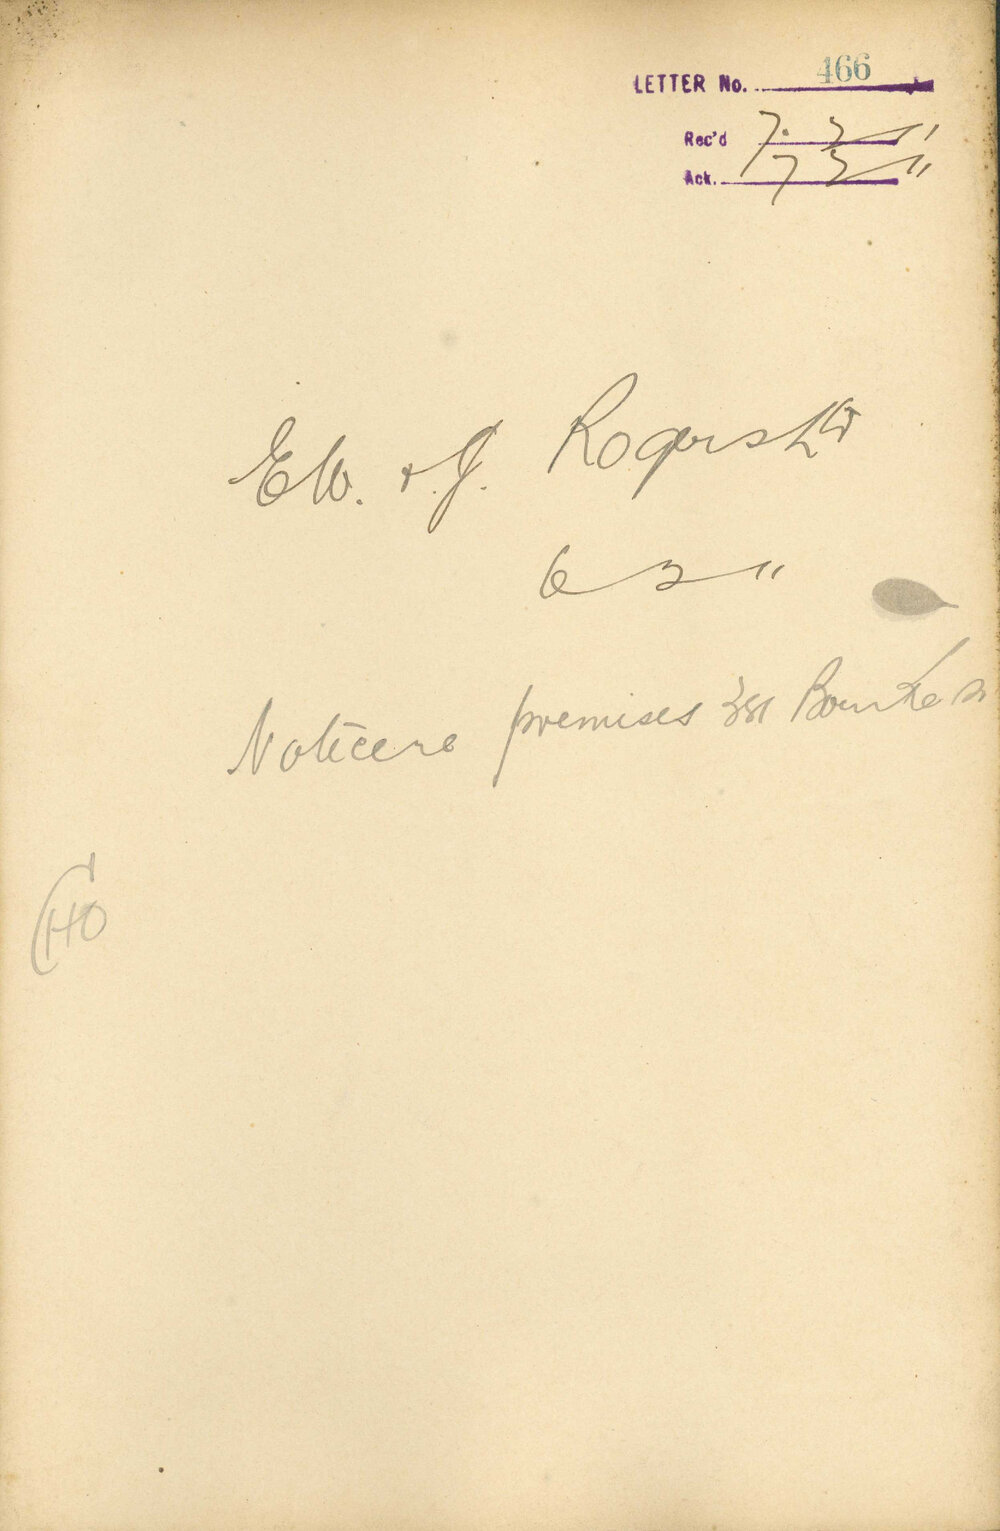 LETTER No. 466
Rec'd 7. 3 11
Ack. 7 3 11
E W. & J. Rogers
6 3 11
Notice re premises 381 Bourke St
CHO